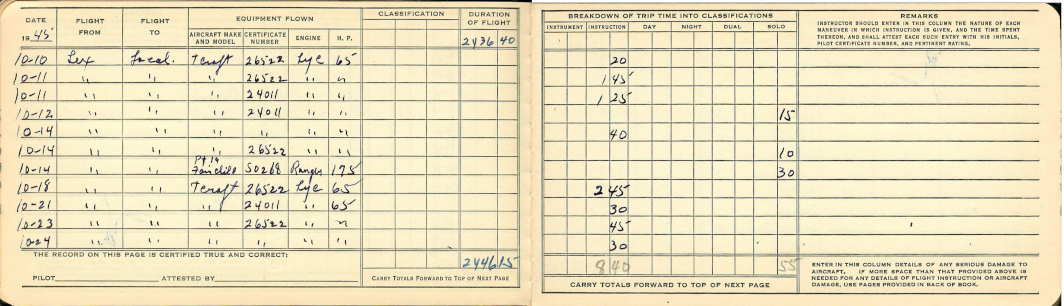 DATE FLIGHT FROM FLIGHT TO EQUIPMENT FLOWN CLASSIFICATION DURATION OF FLIGHT
1945 AIRCRAFT MAKE AND MODEL CERTIFICATE NUMBER ENGINE H. P. 2436 40
10-10 Lex Local. Tcraft 26522 Lyc 65
10-11 " " " 26522 " "
10-11 " " " 24011 " "
10-12 " " " 24011 " "
10-14 " " " " " "
10-14 " " 26522 " "
10-14 " " Pt 19 Fairchild 50268 Ranger 175
10-18 " " Tcraft 26522 Lyc 65
10-21 " " " 24011 " 65
10-23 " " " 26522 " "
10-24 " " " " " "
THE RECORD ON THIS PAGE IS CERTIFIED TRUE AND CORRECT: 2446 15
PILOT ATTESTED BY CARRY TOTALS FORWARD TO TOP OF NEXT PAGE
BREAKDOWN OF TRIP TIME INTO CLASSIFICATIONS
INSTRUMENT INSTRUCTION DAY NIGHT DUAL SOLO
REMARKS
INSTRUCTOR SHOULD ENTER IN THIS COLUMN THE NATURE OF EACH
MANEUVER IN WHICH INSTRUCTION IS GIVEN, AND THE TIME SPENT
THEREON, AND SHALL ATTEST EACH SUCH ENTRY WITH HIS INITIALS,
PILOT CERTIFICATE NUMBER, AND PERTINENT RATING.
20
1 45
1 25
15
40
10
30
2 45
30
45
30
8 40 55
CARRY TOTALS FORWARD TO TOP OF NEXT PAGE
ENTER IN THIS COLUMN DETAILS OF ANY SERIOUS DAMAGE TO
AIRCRAFT. IF MORE SPACE THAN THAT PROVIDED ABOVE IS
NEEDED FOR ANY DETAILS OF FLIGHT INSTRUCTION OR AIRCRAFT
DAMAGE, USE PAGES PROVIDED IN BACK OF BOOK.